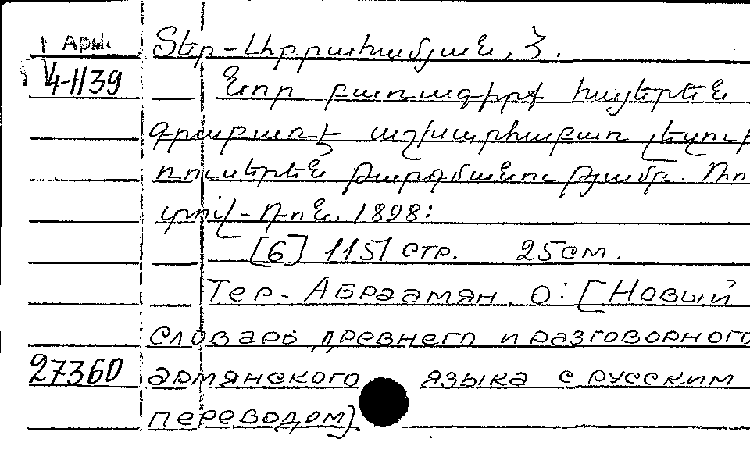 1 Арм.
4-1139
Տեր-Աբրահամյան, Հ.
Նոր բառագիրք հայերեն
գրաբառէ աշխարհաբառ լեզու
ռուսերեն թարգմանությամբ. Ռոս
տով-Դոն. 1898:
[6] 1151 стр. 25см.
Тер-Абраамян. О: [Новый
словарь древнего и разговорного
27360
армянского языка с русским
переводом]